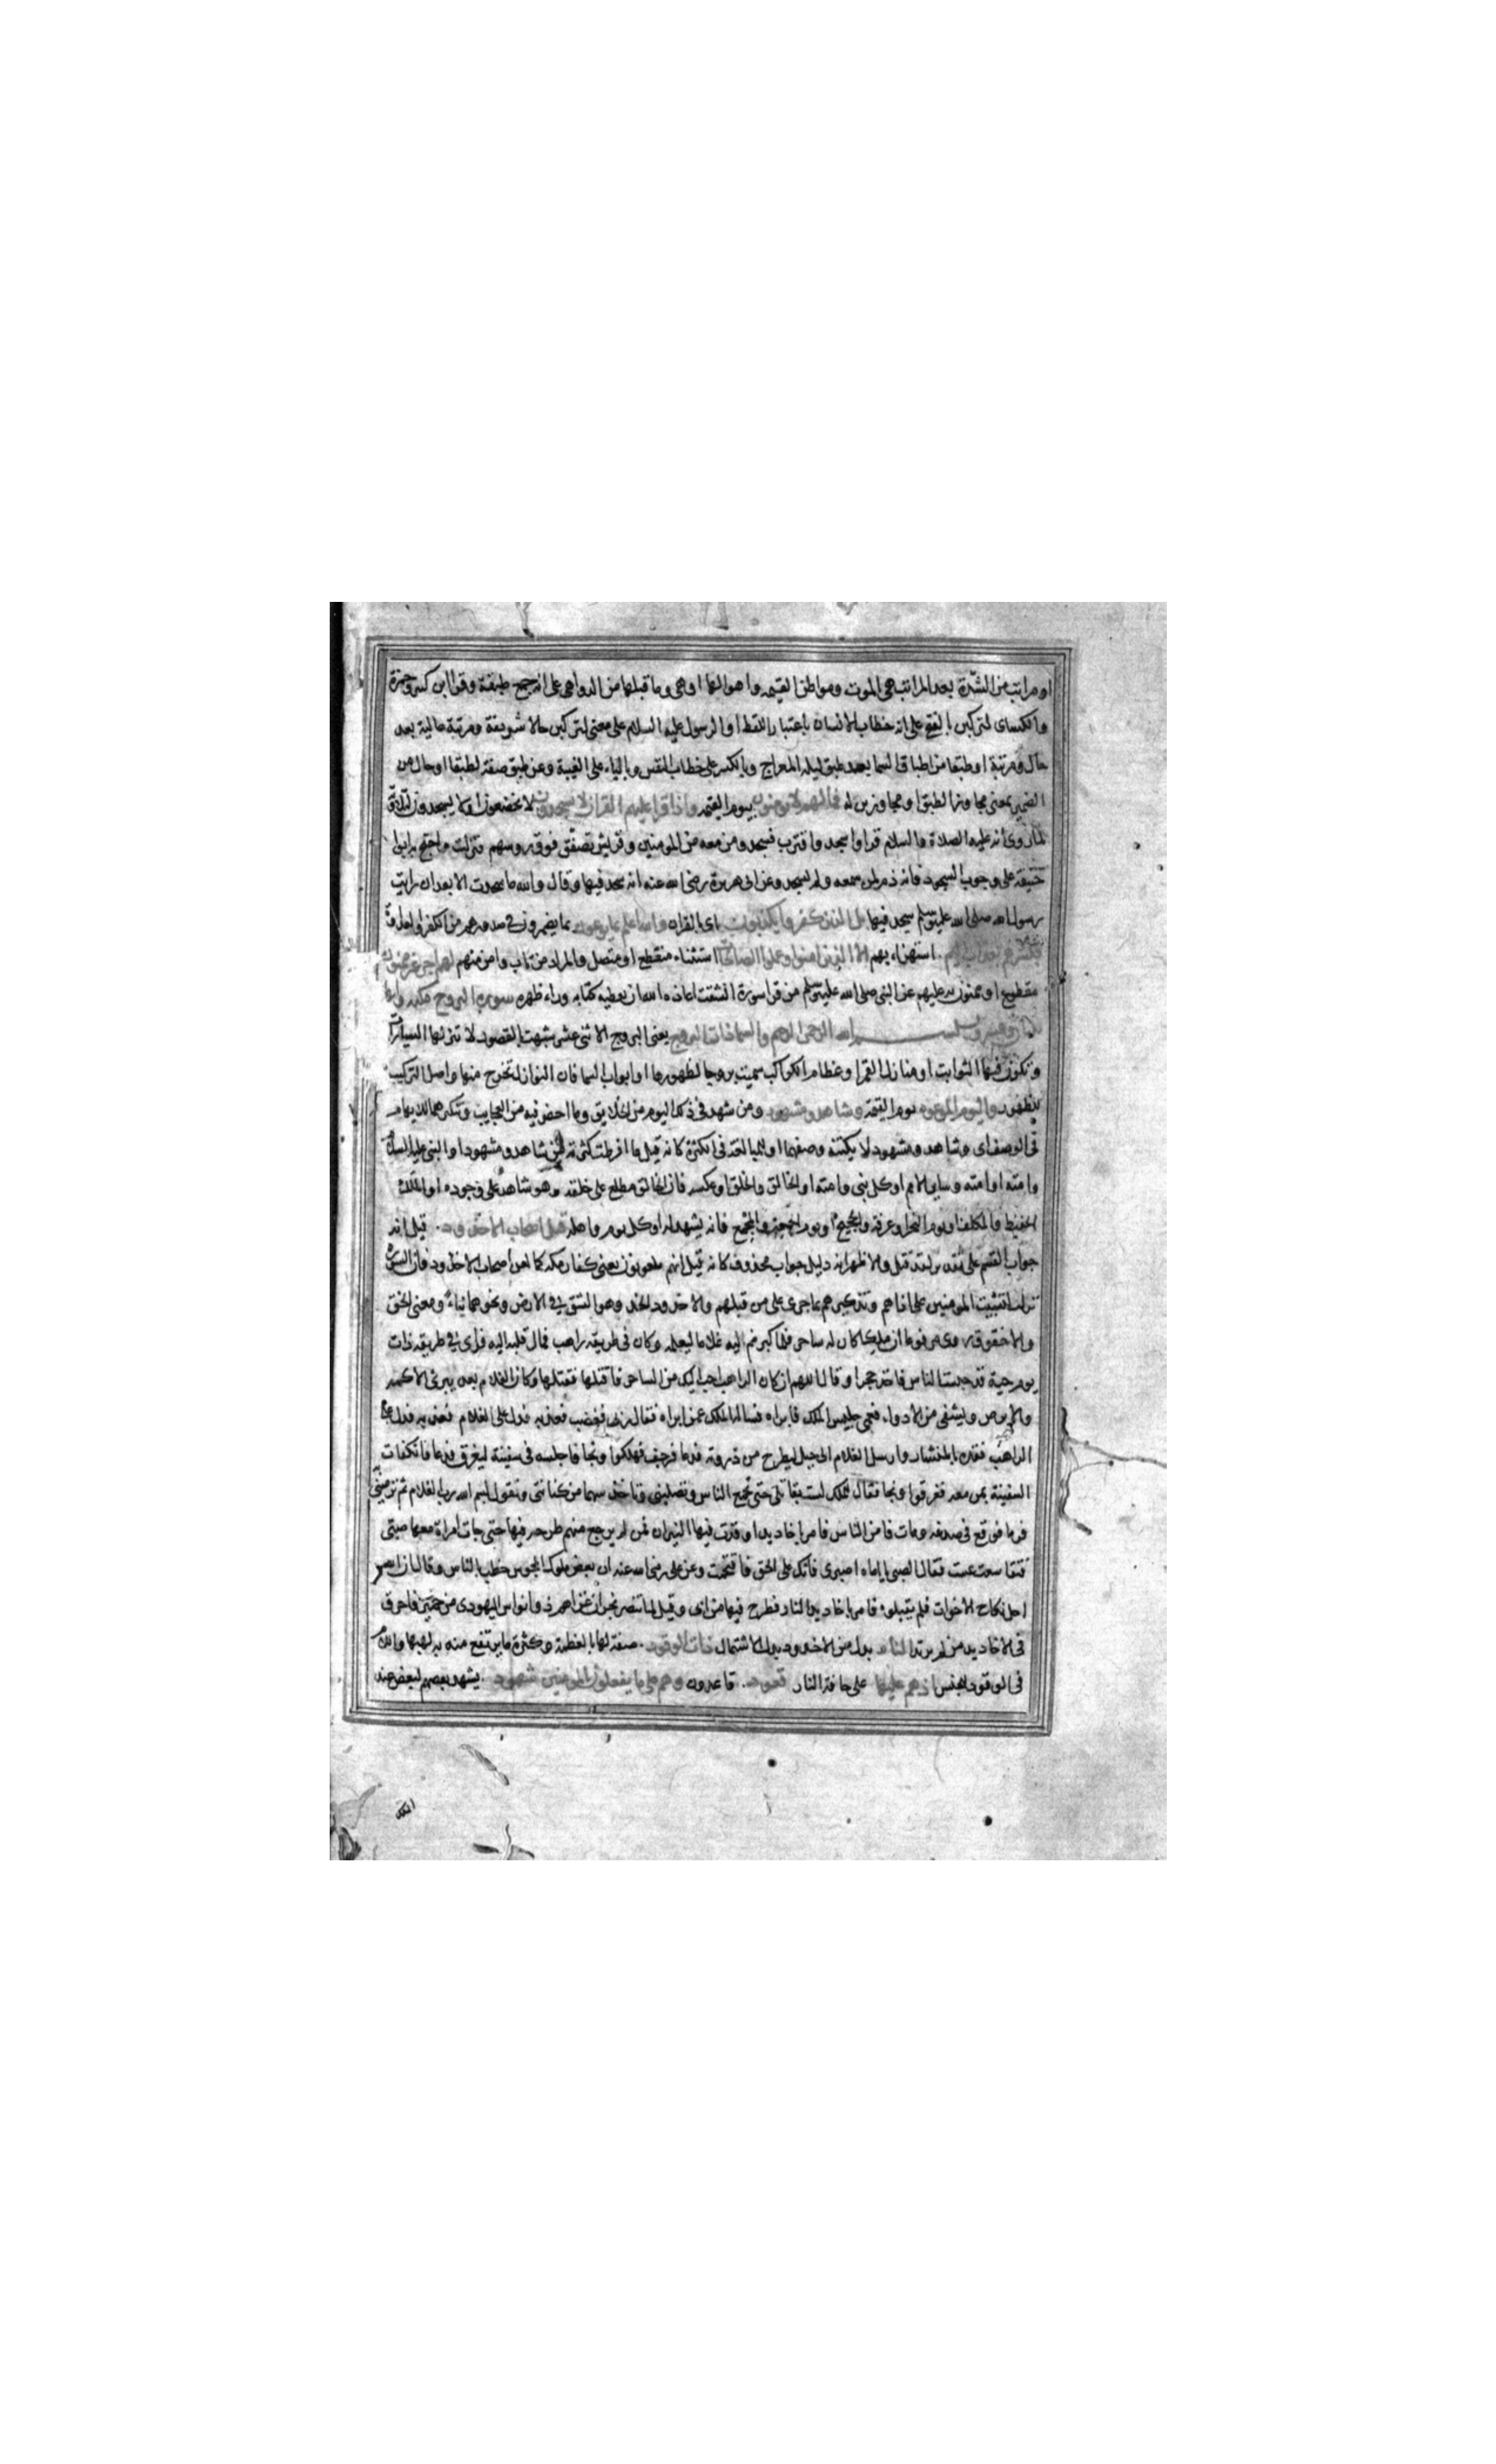 او مراتب من الشدّة بعد المراتب هى الموت ومواطن القيمه واهوالها اوهى وما قبلها من الدواهى على انه جمع طبقة وقرا ابن كثير وحمزة
والكساى لتركبن بالفتح على انه خطاب الانسان باعتبار اللفظ او الرسول عليه السلام على معنى لتركبن حالا شريفة ومرتبة عالية بعد
حال ومرتبة او طبقا من اطباق السما بعد طبق ليله المعراج وبالكسر على خطاب النفس وبالياء على الغيبة وعن طبق صفة لطبقا او حال من
الضمير بمعنى مجاوزا لطبق او مجاوزين له فمالهم لا يومنون بيوم القيمه واذا قرا عليهم القران لا يسجدون لا يخضعون او لا يسجدون لتلاوته
لما روى أنه عليه الصلاة والسلام قرا واسجد واقترب فسجد ومن معه من المومنين وقريش تصفّق فوق روسهم فنزلت واحتج به ابو
حنيفة على وجوب السجود فانه ذم لمن سمعه ولم يسجد وعن ابى هريرة رضى الله عنه انه سجد فيها وقال والله ما سجدت الا بعد ان رايت
رسول الله صلى الله عليه وسلم سيجد فيها بل الذين كفروا يكذبون اى بالقران والله اعلم بما يوعون بما يضمرون فى صدورهم من الكفر والعداوة
فبشرهم بعذاب اليم استهزاء بهم الا الذين امنوا وعملوا الصالحات استثناء منقطع او متصل والمراد من تاب وامن منهم لهم اجر غير ممنون
مقطوع او ممنون به عليهم عن النبى صلى الله عليه وسلم من قرا سورة انشقت اعاذه الله ان يعطيه كتابه وراء ظهره سورة البروج مكيه وايها
بسم الله الرحمن الرحيم والسما ذات البروج يعنى البروج الاثنى عشر شبهت بالقصور لانه تنزلها السيارات
وتكون فيها الثوابت او منازل القمر او عظام الكواكب سميت بروجا لظهورها او ابواب السما فان النوازل تخرج منها واصل التركيب
للظهور واليوم الموعود يوم القيمة وشاهد ومشهود ومن شهد فى ذلك اليوم من الخلايق وما احضر فيه من العجايب وتنكيرهما للابهام
فى الوصف اى وشاهد ومشهود لا يكتنه وصفهما او للمبالغة فى الكثرة كانه قيل ما افرطت كثرته من شاهد ومشهود او النبى عليه السلام
وامته او امته وساير الامم او كل نبى وامته او الخالق والخلق او عكسه فان الخالق مطلع على خلقه وهو شاهد على وجوده او الملك
الحفيظ والمكلف او يوم النحر او عرفة والحجيج او يوم الجمعة والمجمع فانه يشهد له او كل يوم واهله قتل اصحاب الاخدود قيل انه
جواب القسم على تقدير لقد قتل والاظهر انه دليل جواب محذوف كانه قيل انهم ملعونون يعنى كفار مكه كما لعن اصحاب الاخدود فان السورة
نزلت لتثبيت المومنين على اذاهم وتذكيرهم بما جرى على من قبلهم والاخدود الخد وهو الشق فى الارض ونحوهما بناء ومعنى الخق
والاخقوق روى مرفوعا ان ملكا كان له ساحر فلما كبر ضم اليه غلاما ليعلمه وكان فى طريقه راهب فمال قلبه اليه فراى فى طريقه ذات
يوم حية قد حبست الناس فاخذ حجرا وقال اللهم ان كان الراهب احب اليك من الساحر فاقتلها فقتلها وكان الغلام بعد يبرئ الاكمه
والابرص ويشفى من الادواء فعمى جليس الملك فابراه فساله الملك عمن ابراه فقال ربى فغضب فعذبه فدل على الغلام فعذبه فدل على
الراهب فقده بالمنشار وارسل الغلام الى جبل ليطرح من ذروته فدعا فرجف فهلكوا ونجا فاجلسه فى سفينة ليغرق فدعا فانكفات
السفينة بمن معه فغرقوا ونجا فقال للملك لست بقاتلى حتى تجمع الناس وتصلبنى وتاخذ سهما من كنانتى وتقول بسم الله رب الغلام ثم ترمينى
فرماه فوقع فى صدغه ومات فامن الناس فامر باخاديد اوقدت فيها النيران فمن لم يرجع منهم طرحه فيها حتى جات امراة معها صبى
فتقاعست فقال الصبى يا اماه اصبرى فانك على الحق فاقتحمت وعن على رضى الله عنه ان بعض ملوك المجوس خطب بالناس وقال ان الله
احل نكاح الاخوات فلم يقبلوه فامر باخاديد النار فطرح فيها من ابى وقيل لما تنصر نجران غزاهم ذو انواس اليهودى من حمير فاحرق
فى الاخاديد من لم يرتد النار بدل من الاخدود بدل الاشتمال ذات الوقود صفة لها بالعظمة وكثرة ما يرتفع منه به لهبها واللام
فى الوقود للجنس اذ هم عليها على حافة النار قعود قاعدون وهم على ما يفعلون بالمومنين شهود يشهد بعضهم لبعض عند
الملك